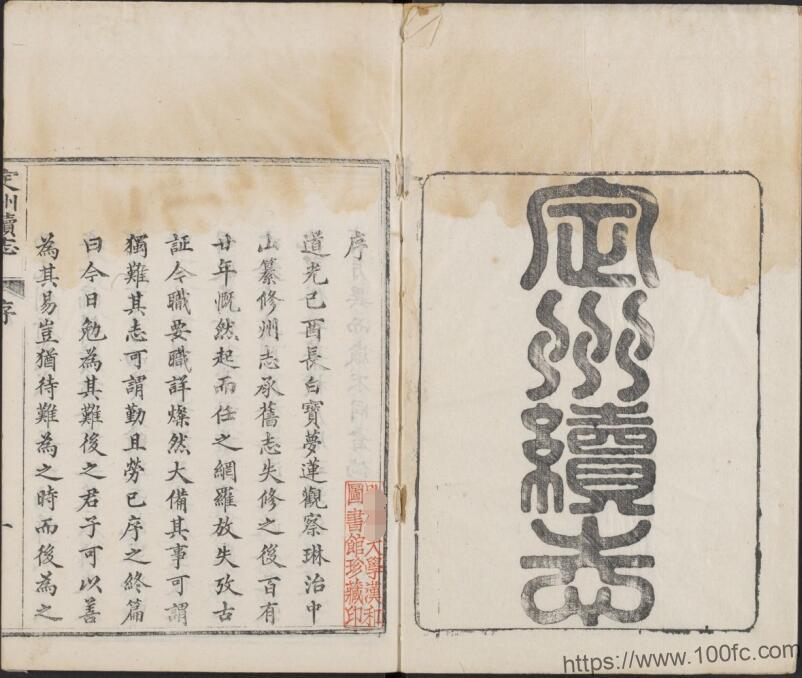 定州續志
序
道光己酉長白寶夢蓮觀察琳治中
山纂修州志承舊志失修之後百有
廿年慨然起而任之網羅放失攷古
証今職要職詳燦然大備其事可謂
獨難其志可謂勤且勞已序之終篇
曰今日勉為其難後之君子可以善
為其易豈猶待難為之時而後為之
定州續志
序
一
大學漢和
圖書館珍藏印
https://www.100fc.com